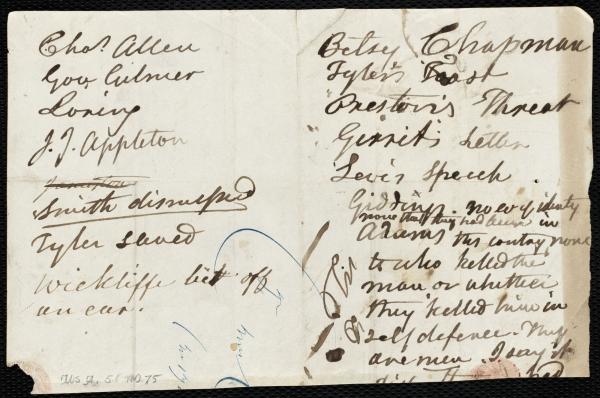 Chas. Allen
Gov. Gilmer
Loring
J. J. Appleton
Smith dismissed
Tyler saved
Wickliffe bit off
an ear.
Betsy Chapman
Tyler's Toast
Preston's Threat
Gerrit's Letter
Levi's Speech
Giddings. no evidenty
none that they had been in
Adams this country none
to who killed the
man or whether
they killed him in
self defence. They
are men. I say it